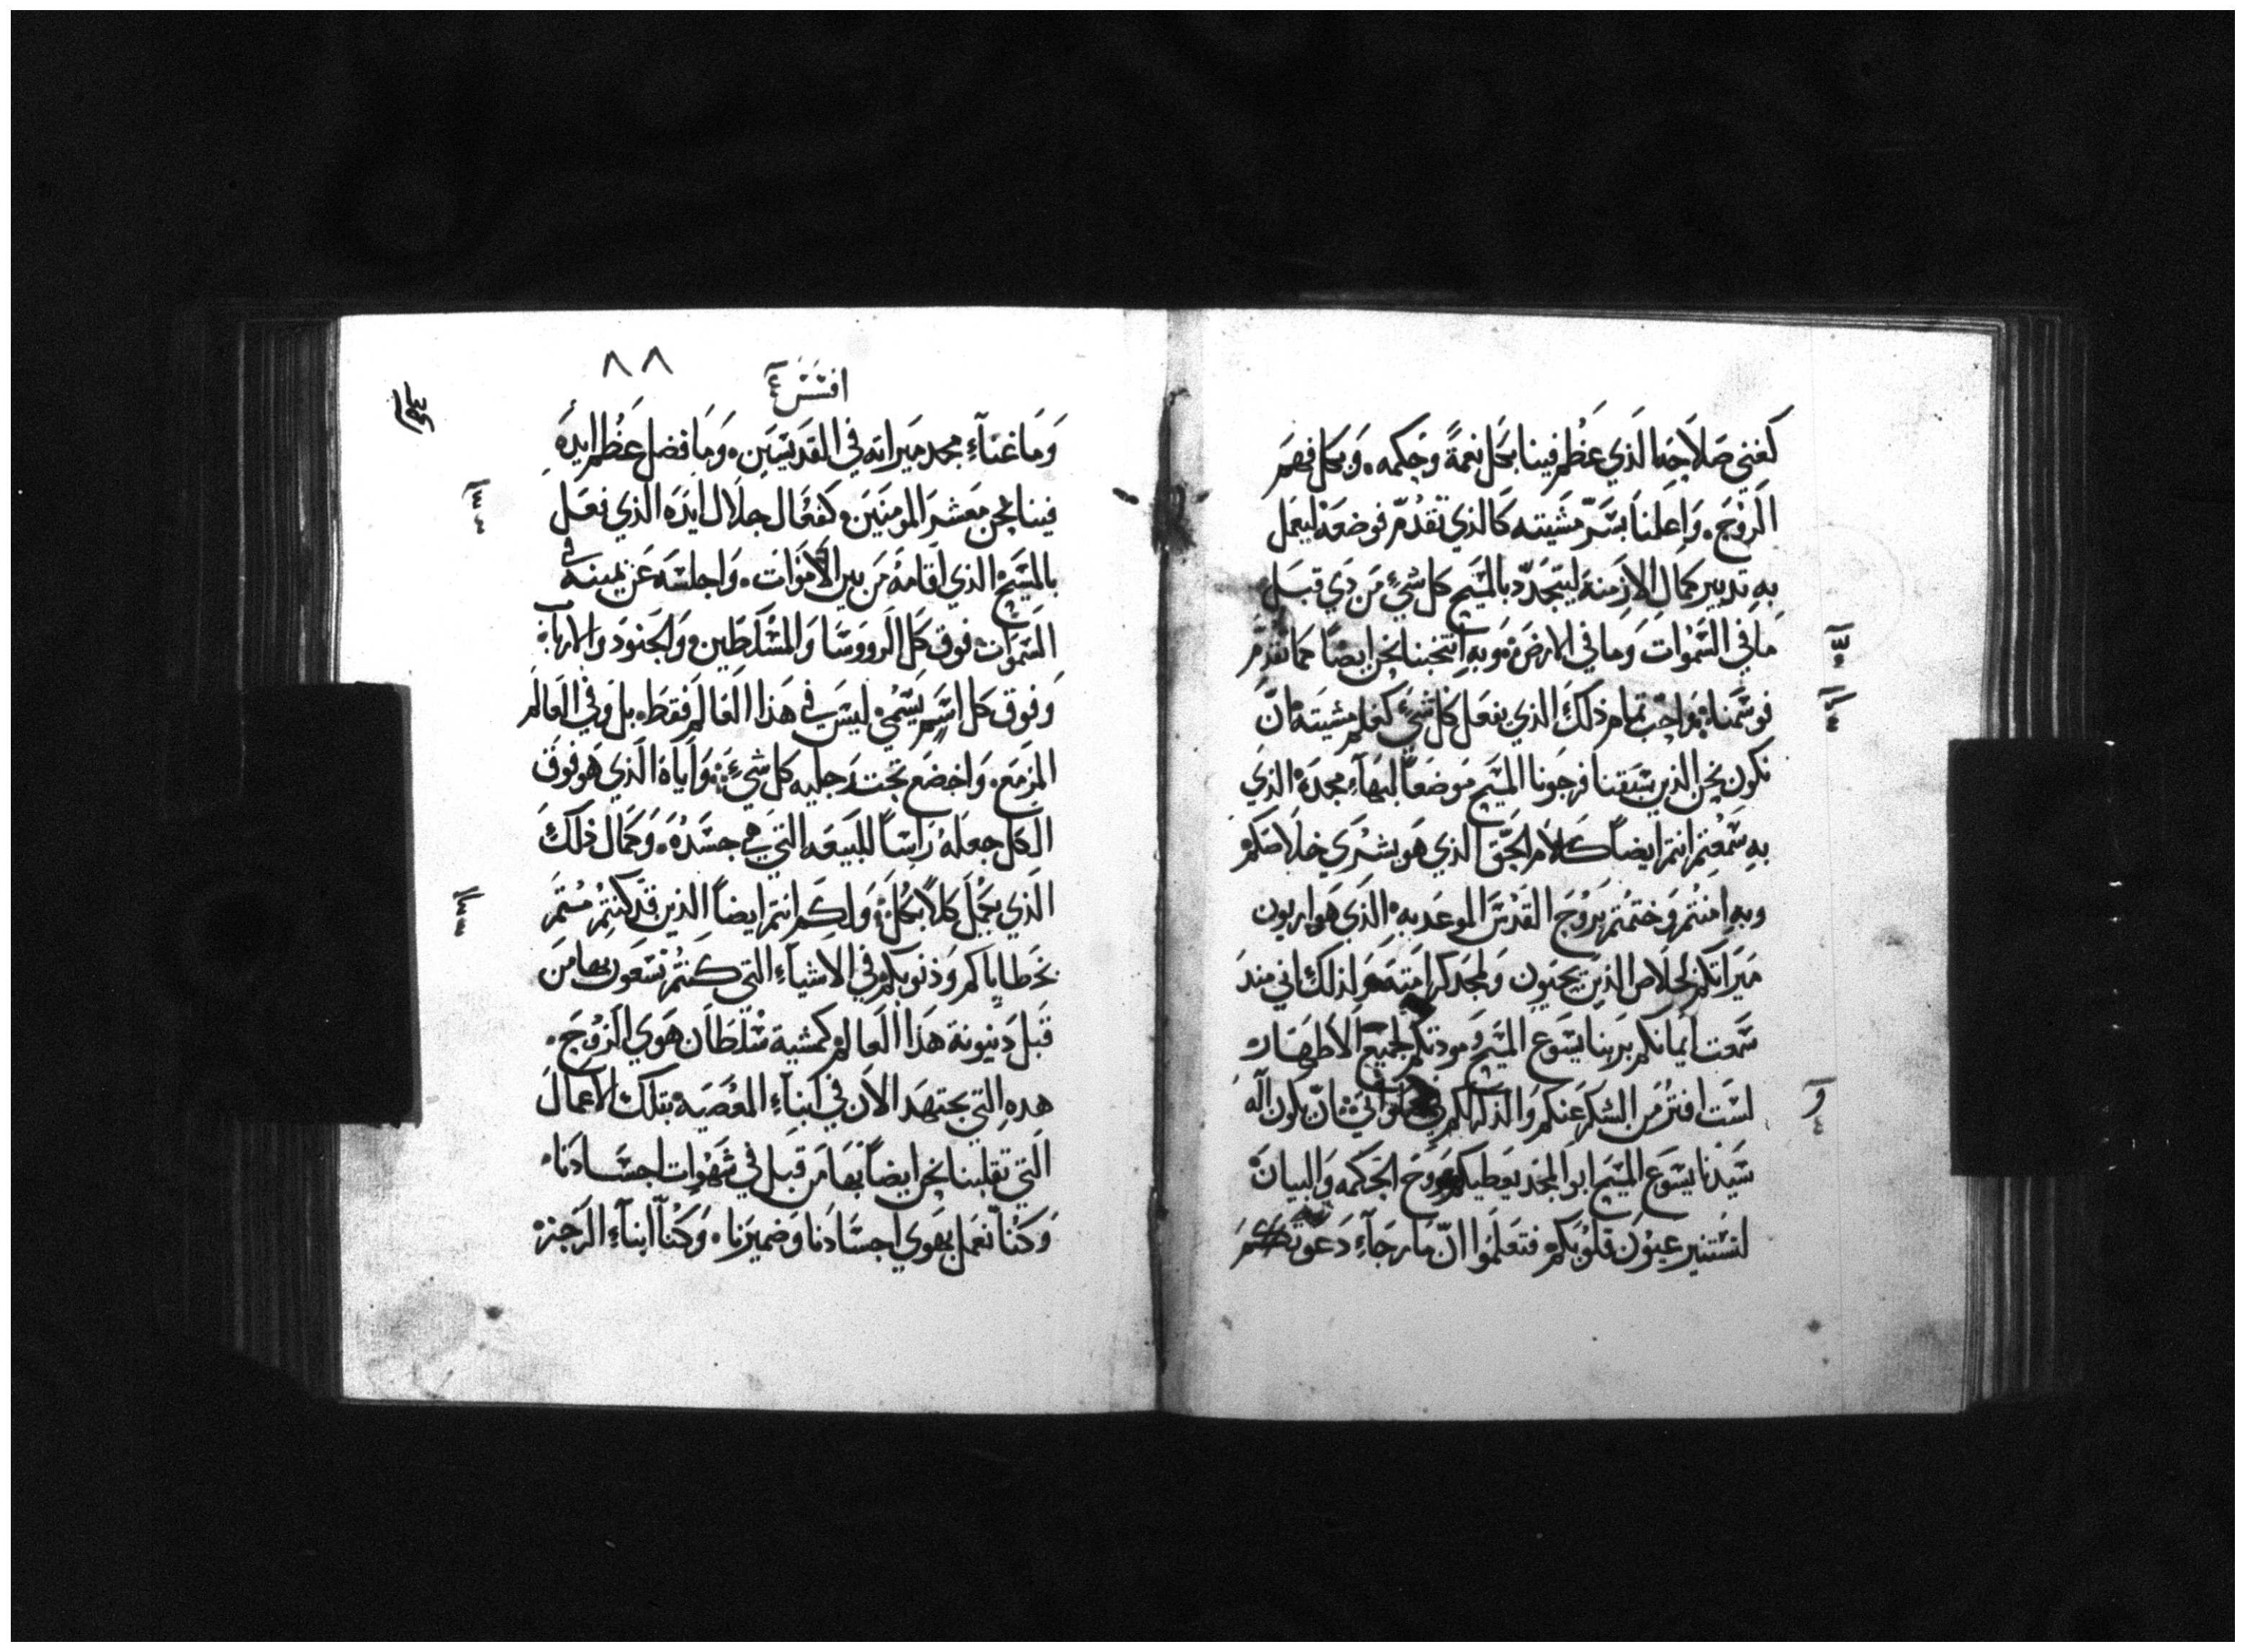 كغني صلاحه الذي عظم فينا بكل نعمة وحكمه. وبكل فهم
الروح. واعلمنا بسر مشيته كالذي تقدم فوضعه ليعمل
به تدبير كمال الازمنة ليتجدد بالمسيح كل شيء من ذي قبل
ما في السموات وما في الارض وبه انتخبنا نحن ايضا كما تقدم
فوسمنا واحب تمام ذلك الذي يفعل كل شيء كعلم مشيته ان
نكون نحن الذين سبقنا فرجونا المسيح موضعا لبهاء مجده الذي
به سمعتم انتم ايضا كلام الحق الذي هو بشري خلاصكم
وبه امنتم وختمتم بروح القدس الموعد به الذي هو اربون
ميراتكم لخلاص الذين يحيون ولمجد كرامته لذلك اني منذ
سمعت ايمانكم بربنا يسوع المسيح ومودتكم لجميع الاطهار
لست افتر من الشكر عنكم والذكر لكم في صلواتي ان يكون اله
سيدنا يسوع المسيح ابو المجد يعطيكم روح الحكمه والبيان
لتستنير عيون قلوبكم فتعلموا ان ما رجاء دعوتكم
٨٨
افسس
وما غناء مجد ميراته في القديسين. وما فضل عظم ايده
فينا نحن معشر المومنين. كفعال جلال ايده الذي فعل
بالمسيح الذي اقامه من بين الاموات. واجلسه عن يمينه في
السموات فوق كل الرووسا والمسلطين والجنود والارباب
وفوق كل اسم يسمي ليس في هذا العالم فقط. بل وفي العالم
المزمع. واخضع تحت رجليه كل شيء واياه الذي هو فوق
الكل جعله راسا للبيعه التي هي جسده. وكمال ذلك
الذي يكمل كلا بكل ولكم انتم ايضا الذين قد كنتم متم
بخطاياكم وذنوبكم في الاشياء التي كنتم تسعون بها من
قبل دنيونة هذا العالم كمشية سلطان هوي الروح.
هذه التي يجتهد الان في ابناء المعصية بتلك الاعمال
التي تقلبنا نحن ايضا بها من قبل في شهوات اجسادنا.
وكنا نعمل بهوي اجسادنا وضميرنا. وكنا ابناء الرجز